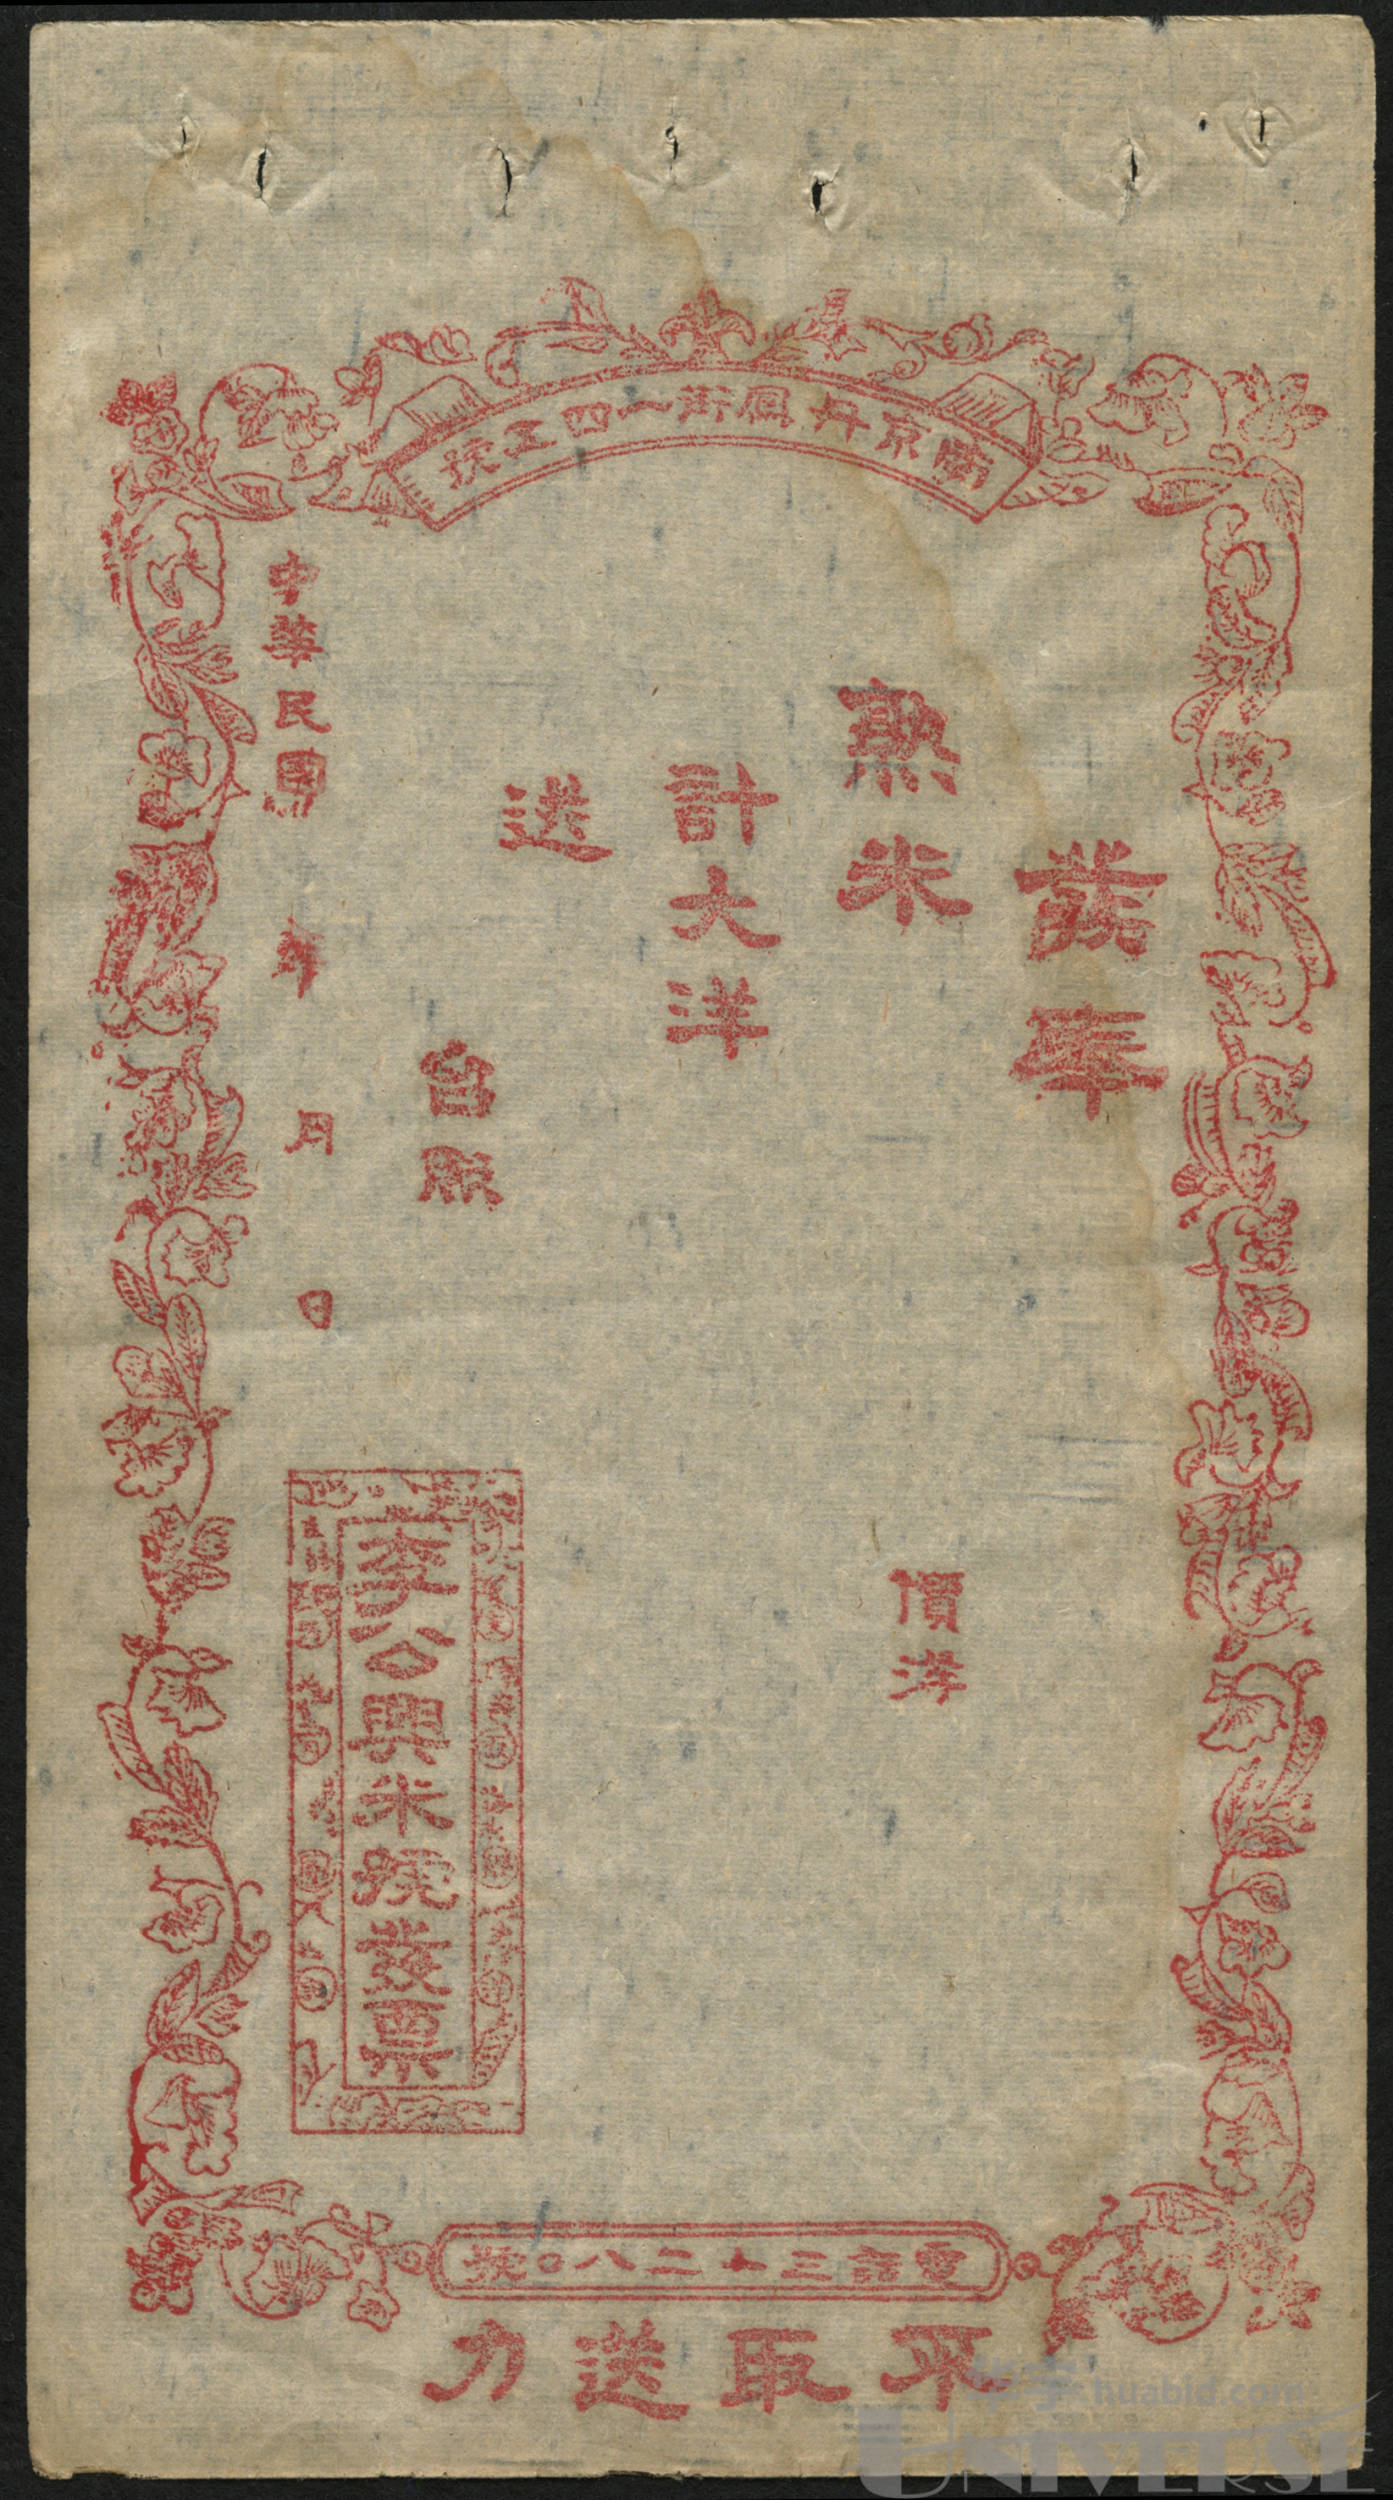 南京丹鳳街一四五號
茂奉
熟米
價洋
計大洋
送
台照
中華民國 年 月 日
李公興米號發票
電話三十二八〇號
不取送力
huabid.com
UNIVERSE